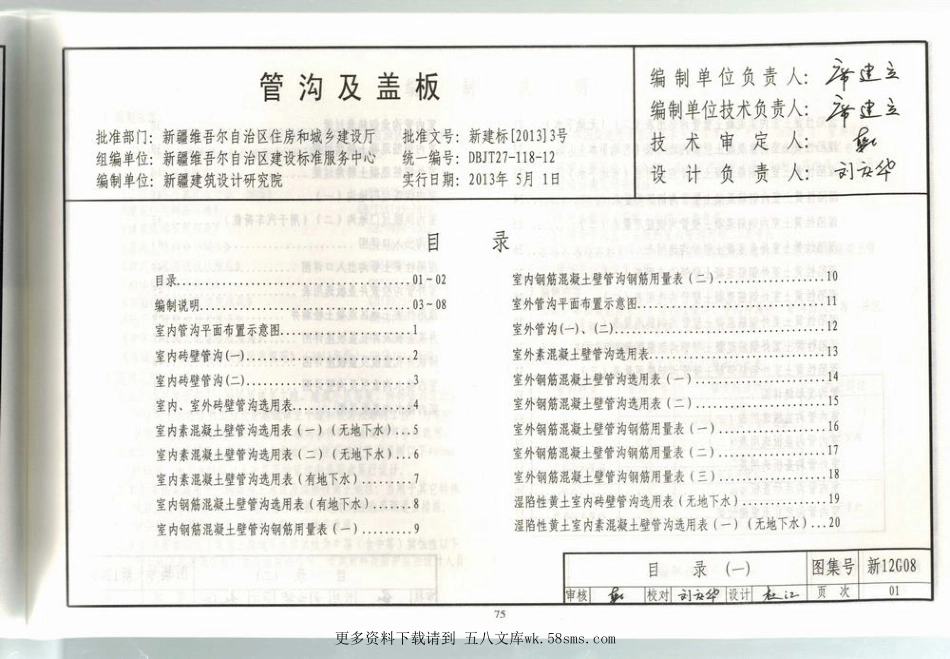 管沟及盖板
批准部门：新疆维吾尔自治区住房和城乡建设厅 批准文号：新建标[2013]3号
组编单位：新疆维吾尔自治区建设标准服务中心 统一编号：DBJT27-118-12
编制单位：新疆建筑设计研究院 实行日期：2013年 5月 1日
编制单位负责人：
编制单位技术负责人：
技术审定人：
设计负责人：
目 录
目录...01~02
编制说明...03~08
室内管沟平面布置示意图...1
室内砖壁管沟(一)...2
室内砖壁管沟(二)...3
室内、室外砖壁管沟选用表...4
室内素混凝土壁管沟选用表(一)(无地下水)...5
室内素混凝土壁管沟选用表(二)(无地下水)...6
室内素混凝土壁管沟选用表(有地下水)...7
室内钢筋混凝土壁管沟选用表(有地下水)...8
室内钢筋混凝土壁管沟钢筋用量表(一)...9
室内钢筋混凝土壁管沟钢筋用量表(二)...10
室外管沟平面布置示意图...11
室外管沟(一)、(二)...12
室外素混凝土壁管沟选用表...13
室外钢筋混凝土壁管沟选用表(一)...14
室外钢筋混凝土壁管沟选用表(二)...15
室外钢筋混凝土壁管沟钢筋用量表(一)...16
室外钢筋混凝土壁管沟钢筋用量表(二)...17
室外钢筋混凝土壁管沟钢筋用量表(三)...18
湿陷性黄土室内砖壁管沟选用表(无地下水)...19
湿陷性黄土室内素混凝土壁管沟选用表(一)(无地下水)...20
目 录 (一) 图集号 新12G08
审核 校对 设计 页 次 01
75
更多资料下载请到 五八文库wk.58sms.com